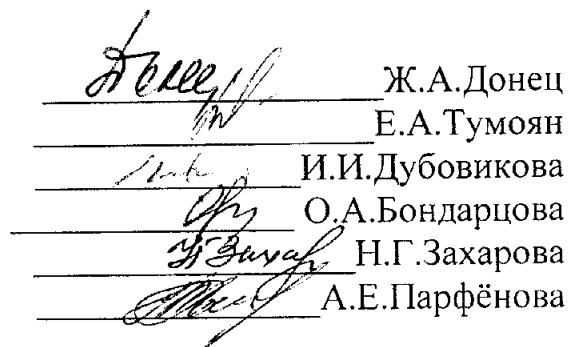 Ж.А.Донец
Е.А.Тумоян
И.И.Дубовикова
О.А.Бондарцова
Н.Г.Захарова
А.Е.Парфёнова